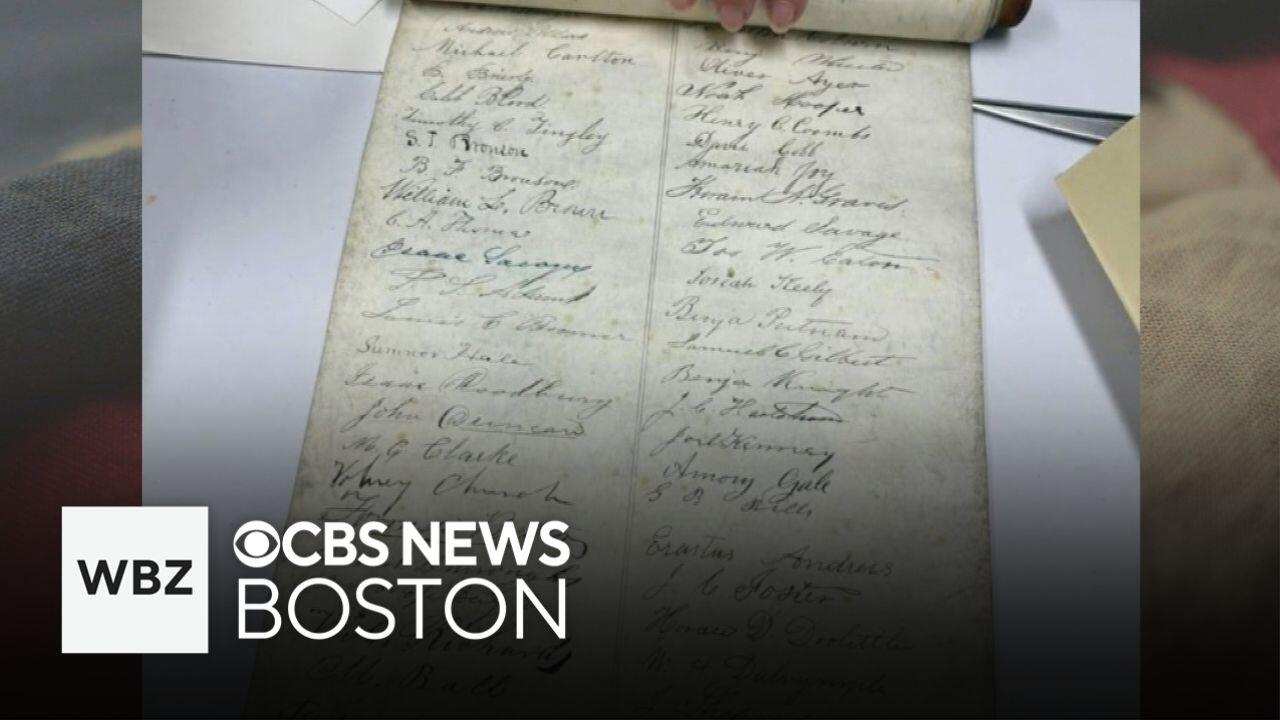 Michael Carlton
Caleb Blood
Timothy C. Tingley
S. T. Bronson
B. F. Bronson
William L. Brown
C. A. Thomas
Isaac Savage
Sumner Hale
Isaac Woodbury
John Duncan
M. G. Clarke
Volney Church
Richards
M. Ball
Benj Wheeler
Oliver Ayer
Noah Hooper
Henry C. Coombs
David Cobb
Amariah Joy
Hiram A. Graves
Edward Savage
Jos W. Eaton
Josiah Keely
Benja Putnam
Samuel C Gilbert
Benja Knight
J. C. Hartshorn
Joel Kenney
Amory Gale
S B
Erastus Andrews
J. C Foster
Horace D. Doolittle
W. H Dalrymple
WBZ
CBS NEWS
BOSTON